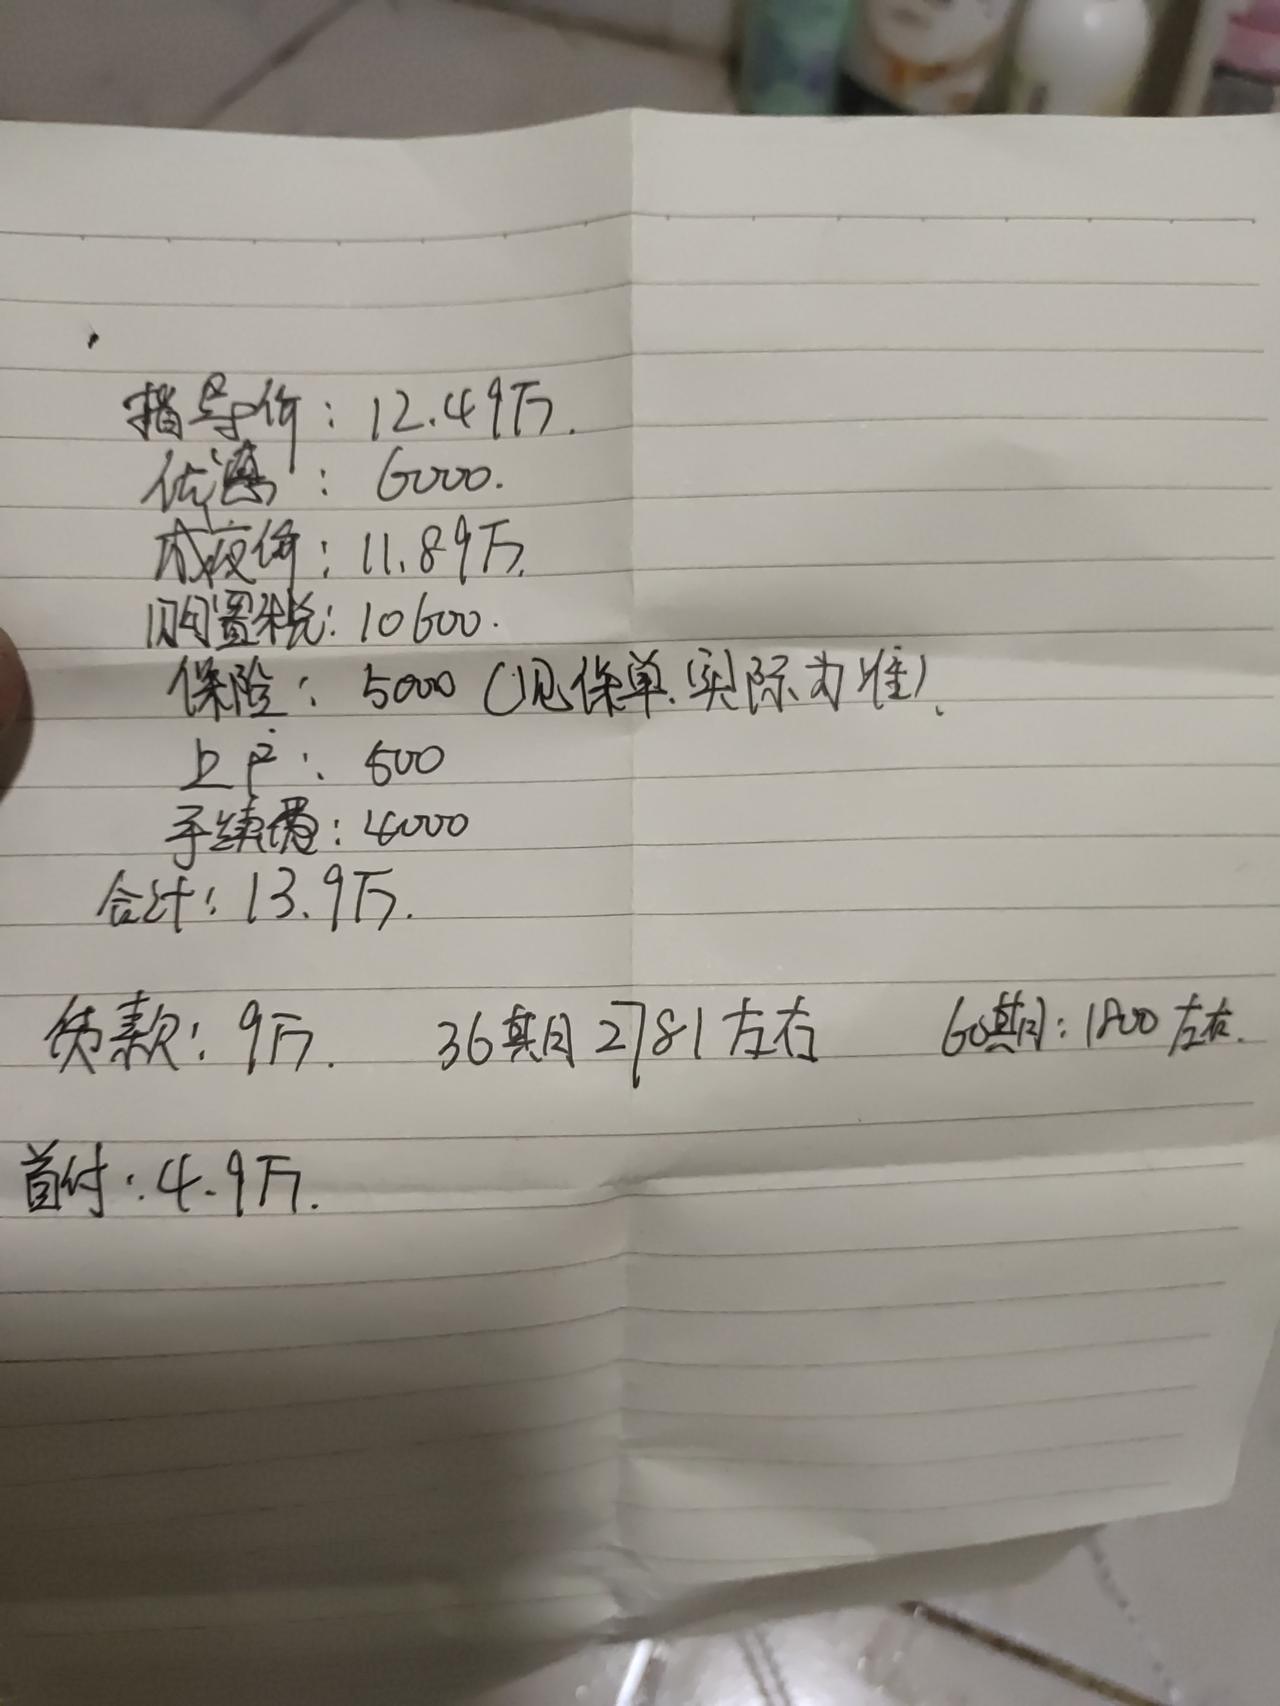 指导价：12.49万.
优惠：6000.
成交价：11.89万.
购置税：10600.
保险：5000（见保单.实际为准）.
上户：500
手续费：4000
合计：13.9万.
贷款：9万. 36期 2781左右 60期：1800左右.
首付：4.9万.